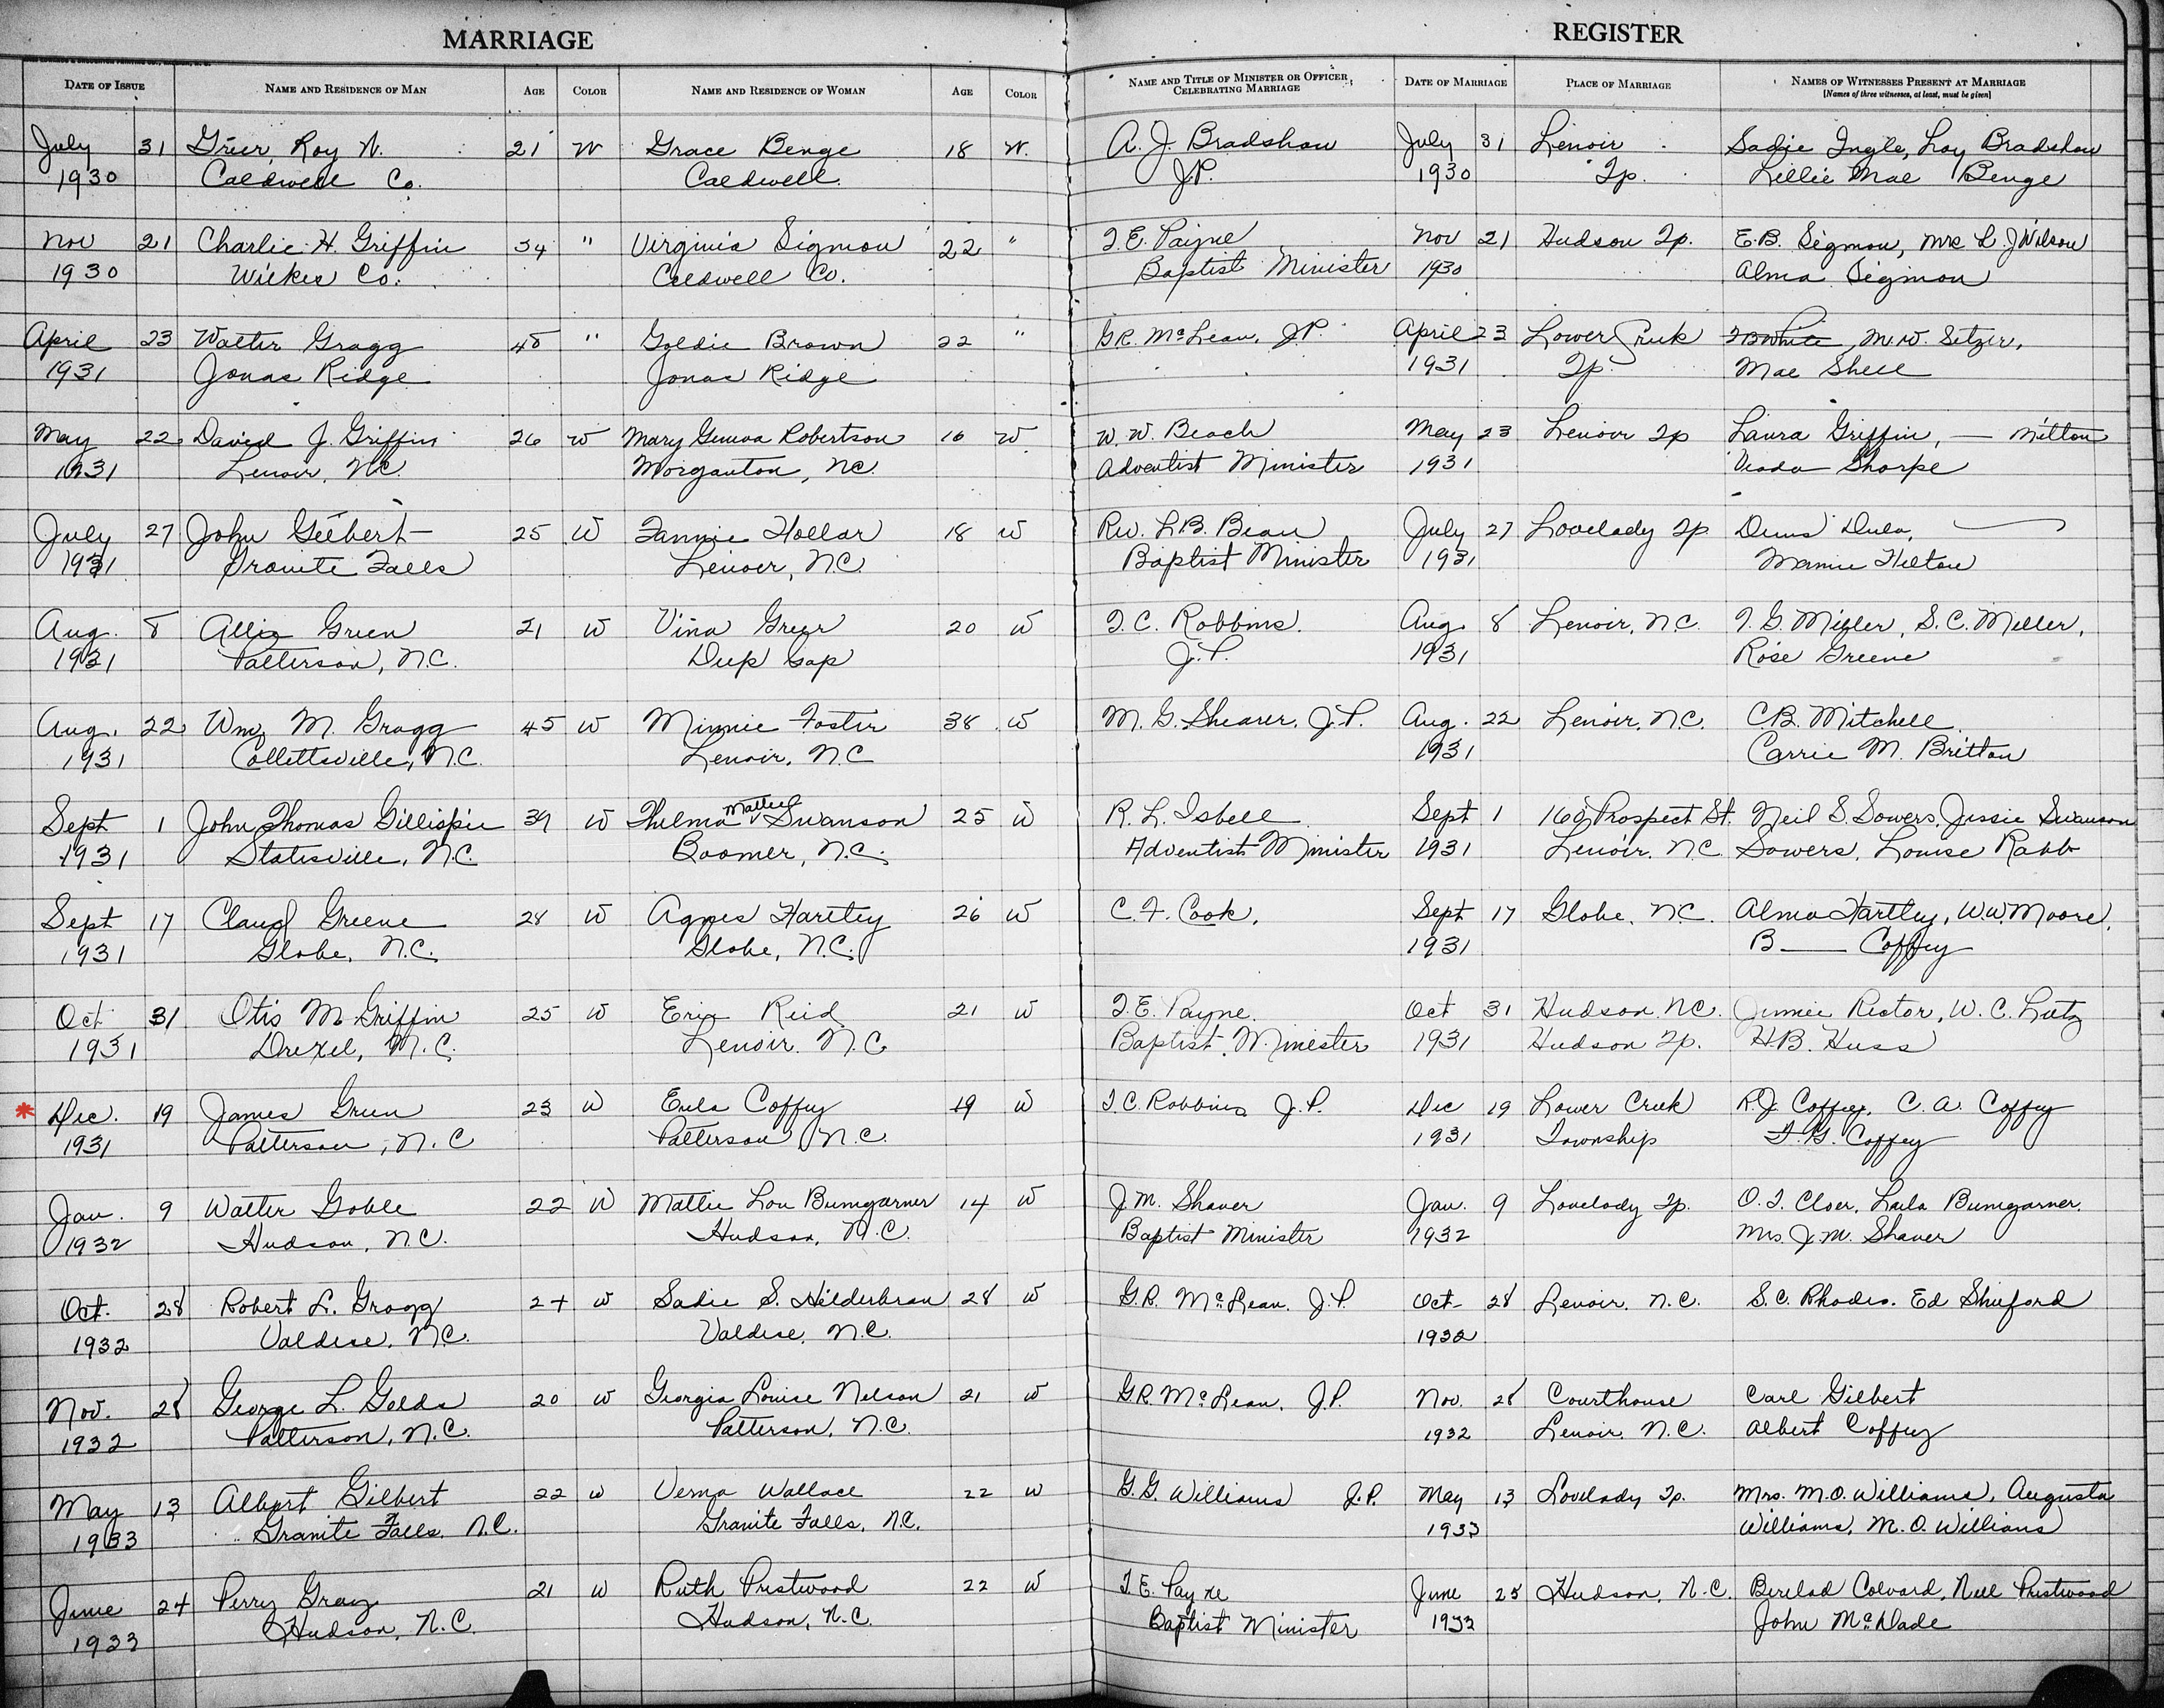 MARRIAGE REGISTER
DATE OF ISSUE NAME AND RESIDENCE OF MAN AGE COLOR NAME AND RESIDENCE OF WOMAN AGE COLOR NAME AND TITLE OF MINISTER OR OFFICER CELEBRATING MARRIAGE DATE OF MARRIAGE PLACE OF MARRIAGE NAMES OF WITNESSES PRESENT AT MARRIAGE
[Names of three witnesses, at least, must be given]
July 31 Grier, Roy N. 21 W Grace Benge 18 W. A. J. Bradshaw July 31 Lenoir Sadie Ingle, Loy Bradshaw
1930 Caldwell Co. Caldwell. J.P. 1930 Tp. Lillie Mae Benge
Nov 21 Charlie H. Griffin 34 " Virginia Sigmon 22 " T.E. Payne Nov 21 Hudson Tp. E.B. Sigmon, Mrs L. J Wilson
1930 Wilkes Co. Caldwell Co. Baptist Minister 1930 Alma Sigmon
April 23 Walter Gragg 48 " Goldie Brown 22 " G.R. McLean, J.P. April 23 Lower Creek M.W. Setzer,
1931 Jonas Ridge Jonas Ridge 1931 Tp. Mae Shell
May 22 David J. Griffin 26 W Mary Geneva Robertson 16 W W. W. Beach May 23 Lenoir Tp Laura Griffin, — Milton
1931 Lenoir, N.C. Morganton, N.C. Adventist Minister 1931 Veada Sharpe
July 27 John Gilbert 25 W Fannie Hollar 18 W Rev. L.B. Bean July 27 Lovelady Tp Dula,
1931 Granite Falls Lenoir, N.C. Baptist Minister 1931 Mamie Helton
Aug. 8 Allie Green 21 W Vina Greer 20 W T. C. Robbins. Aug. 8 Lenoir, N.C. T. G. Miller, S. C. Miller,
1931 Patterson, N.C. Deep Gap J.P. 1931 Rose Greene
Aug. 22 Wm. M. Gragg 45 W Minnie Foster 38 W M. G. Shearer, J.P. Aug. 22 Lenoir, N.C. C.B. Mitchell
1931 Collettsville, N.C. Lenoir, N.C 1931 Carrie M. Britton
Sept 1 John Thomas Gillispie 39 W Thelma Mattie Swanson 25 W R. L. Isbell Sept 1 Prospect St. Neil S. Sowers, Jessie Swanson
1931 Statesville, N.C. Boomer, N.C. Adventist Minister 1931 Lenoir, N.C Sowers, Louise Rabb
Sept 17 Claud Greene 28 W Agnes Hartley 26 W C. F. Cook, Sept 17 Globe, N.C. Alma Hartley, W.W. Moore,
1931 Globe, N.C. Globe, N.C. 1931 B—— Coffey
Oct 31 Otis M Griffin 25 W Reid 21 W T.E. Payne. Oct 31 Hudson, N.C. Jimmie Rector, W. C. Lutz
1931 Drexel, N.C. Lenoir, N.C Baptist Minister 1931 Hudson Tp. H.B. Huss
* Dec. 19 James Green 23 W Eula Coffey 19 W T.C. Robbins J.P. Dec 19 Lower Creek R.J. Coffey, C. A. Coffey
1931 Patterson, N.C Patterson N.C. 1931 Township F. G. Coffey
Jan. 9 Walter Goble 22 W Mattie Lou Bumgarner 14 W J.M. Shaver Jan. 9 Lovelady Tp. O. T. Cloer, Laila Bumgarner,
1932 Hudson, N.C. Hudson, N.C. Baptist Minister 1932 Mrs. J.M. Shaver
Oct. 28 Robert L. Gragg 24 W Sadie S. Hilderbran 28 W G.R. McLean, J.P. Oct 28 Lenoir, N.C. S.C. Rhodes. Ed Shuford
1932 Valdese, N.C. Valdese, N.C. 1932
Nov. 28 George L. Golds 20 W Georgia Louise Nelson 21 W G.R. McLean, J.P. Nov. 28 Courthouse Carl Gilbert
1932 Patterson, N.C. Patterson, N.C. 1932 Lenoir, N.C. Albert Coffey
May 13 Albert Gilbert 22 W Verna Wallace 22 W G.G. Williams J.P. May 13 Lovelady Tp. Mrs. M.O. Williams, Augusta
1933 Granite Falls, N.C. Granite Falls, N.C. 1933 Williams, M. O. Williams
June 24 Perry Gray 21 W Ruth Prestwood 22 W T.E. Payne June 25 Hudson, N.C. Colvard, Nell Prestwood
1933 Hudson, N.C. Hudson, N.C. Baptist Minister 1933 John McDade